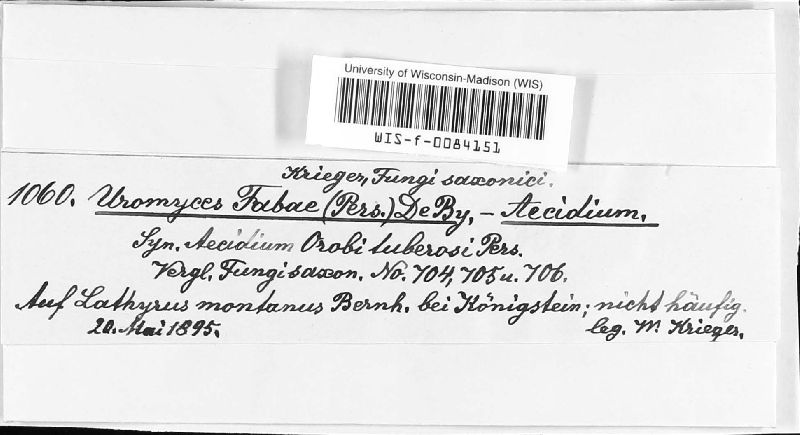 University of Wisconsin-Madison (WIS)
WIS-f-0084151
Krieger, Fungi saxonici.
1060. Uromyces Fabae (Pers.) De By, – Aecidium.
Syn. Aecidium Orobi tuberosi Pers.
Vergl. Fungi saxon. No. 704, 705 u. 706.
Auf Lathyrus montanus Bernh. bei Königstein; nicht häufig.
20. Mai 1895. leg. W. Krieger.